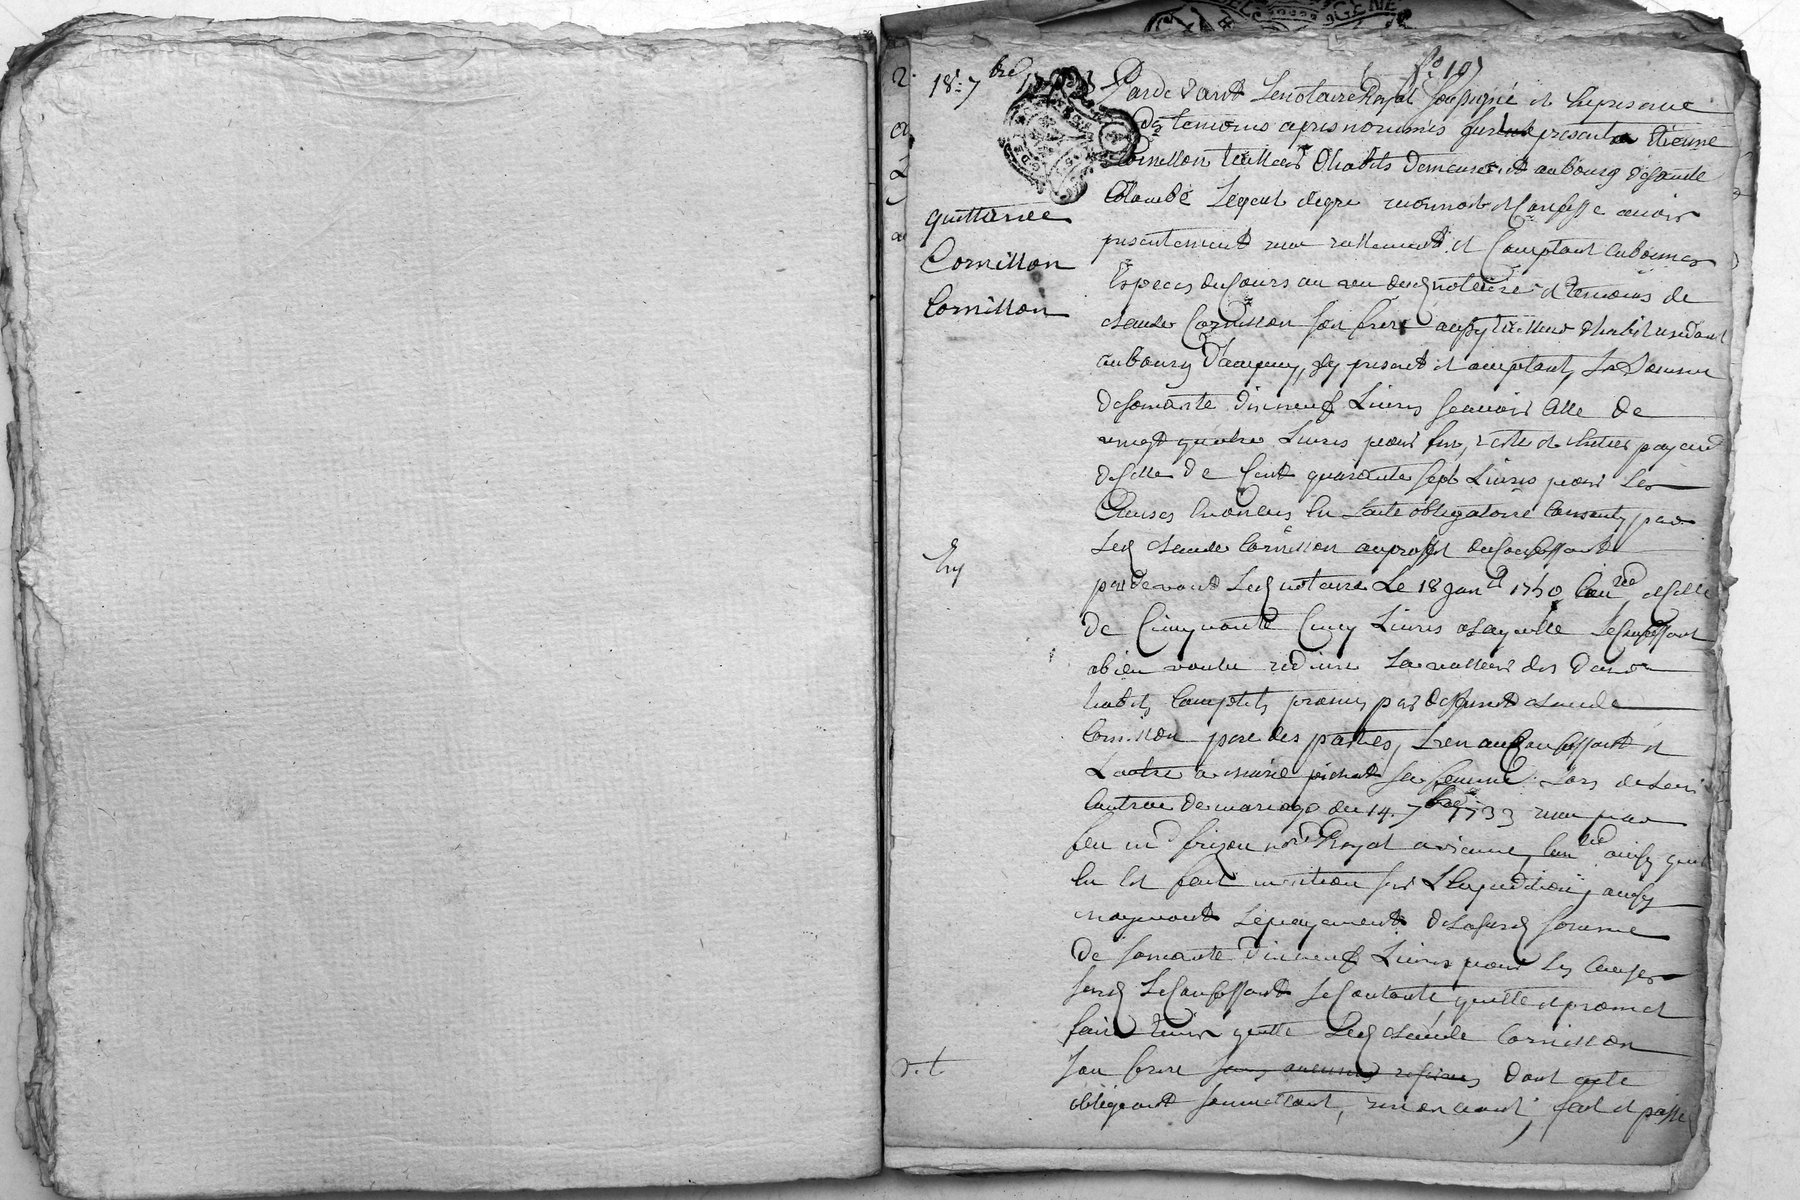 18e 7bre
quittance
Cornillon
Cornillon
Pardevant Le notaire Royal soussigné et En presence
des temoins apres nommés present Etienne
Cornillon tailleur d'habits demeurant au bourg de sainte
Colombe Lequel de gre reconnoit et Confesse avoir
presentement reçu reellement et Comptant en bonnes
Especes du Cours au veu dud notaire et temoins de
claude Cornillon son frere aussy tailleur d'habit residant
au bourg d'ampuy, icy present et acceptant, La Somme
de soixante dix neuf Livres scavoir Celle de
vingt quatre Livres pour fin, reste et Entier payem
de Celle de Cent quarante sept Livres pour Les
Causes Enoncés En L'acte obligatoire Consenty par
Led claude Cornillon au proffit du Confessant
pardevant Led notaire Le 18 Janr 1750 et Celle
de Cinquante Cinq Livres a Laquelle Le Confessant
a bien voulu reduire La valleur des deux
habits Complets promis par deffunt claude
Cornillon pere des parties, L'un au Confessant et
L'autre a marie pichat sa femme Lors de Leur
Contrat de mariage du 14 7bre 1733 reçu par
feu me notre Royal a vienne, ainsy qu'il
En Est fait mention sur L'Expedition, aussy
moyenant Le payement de La susd somme
de soixante dix neuf Livres pour Les Causes
susd Le Confessant se Contante quitte et promet
faire tenir quitte Led claude Cornillon
son frere dont acte
obligeant soumettant, renonceant, fait et passé